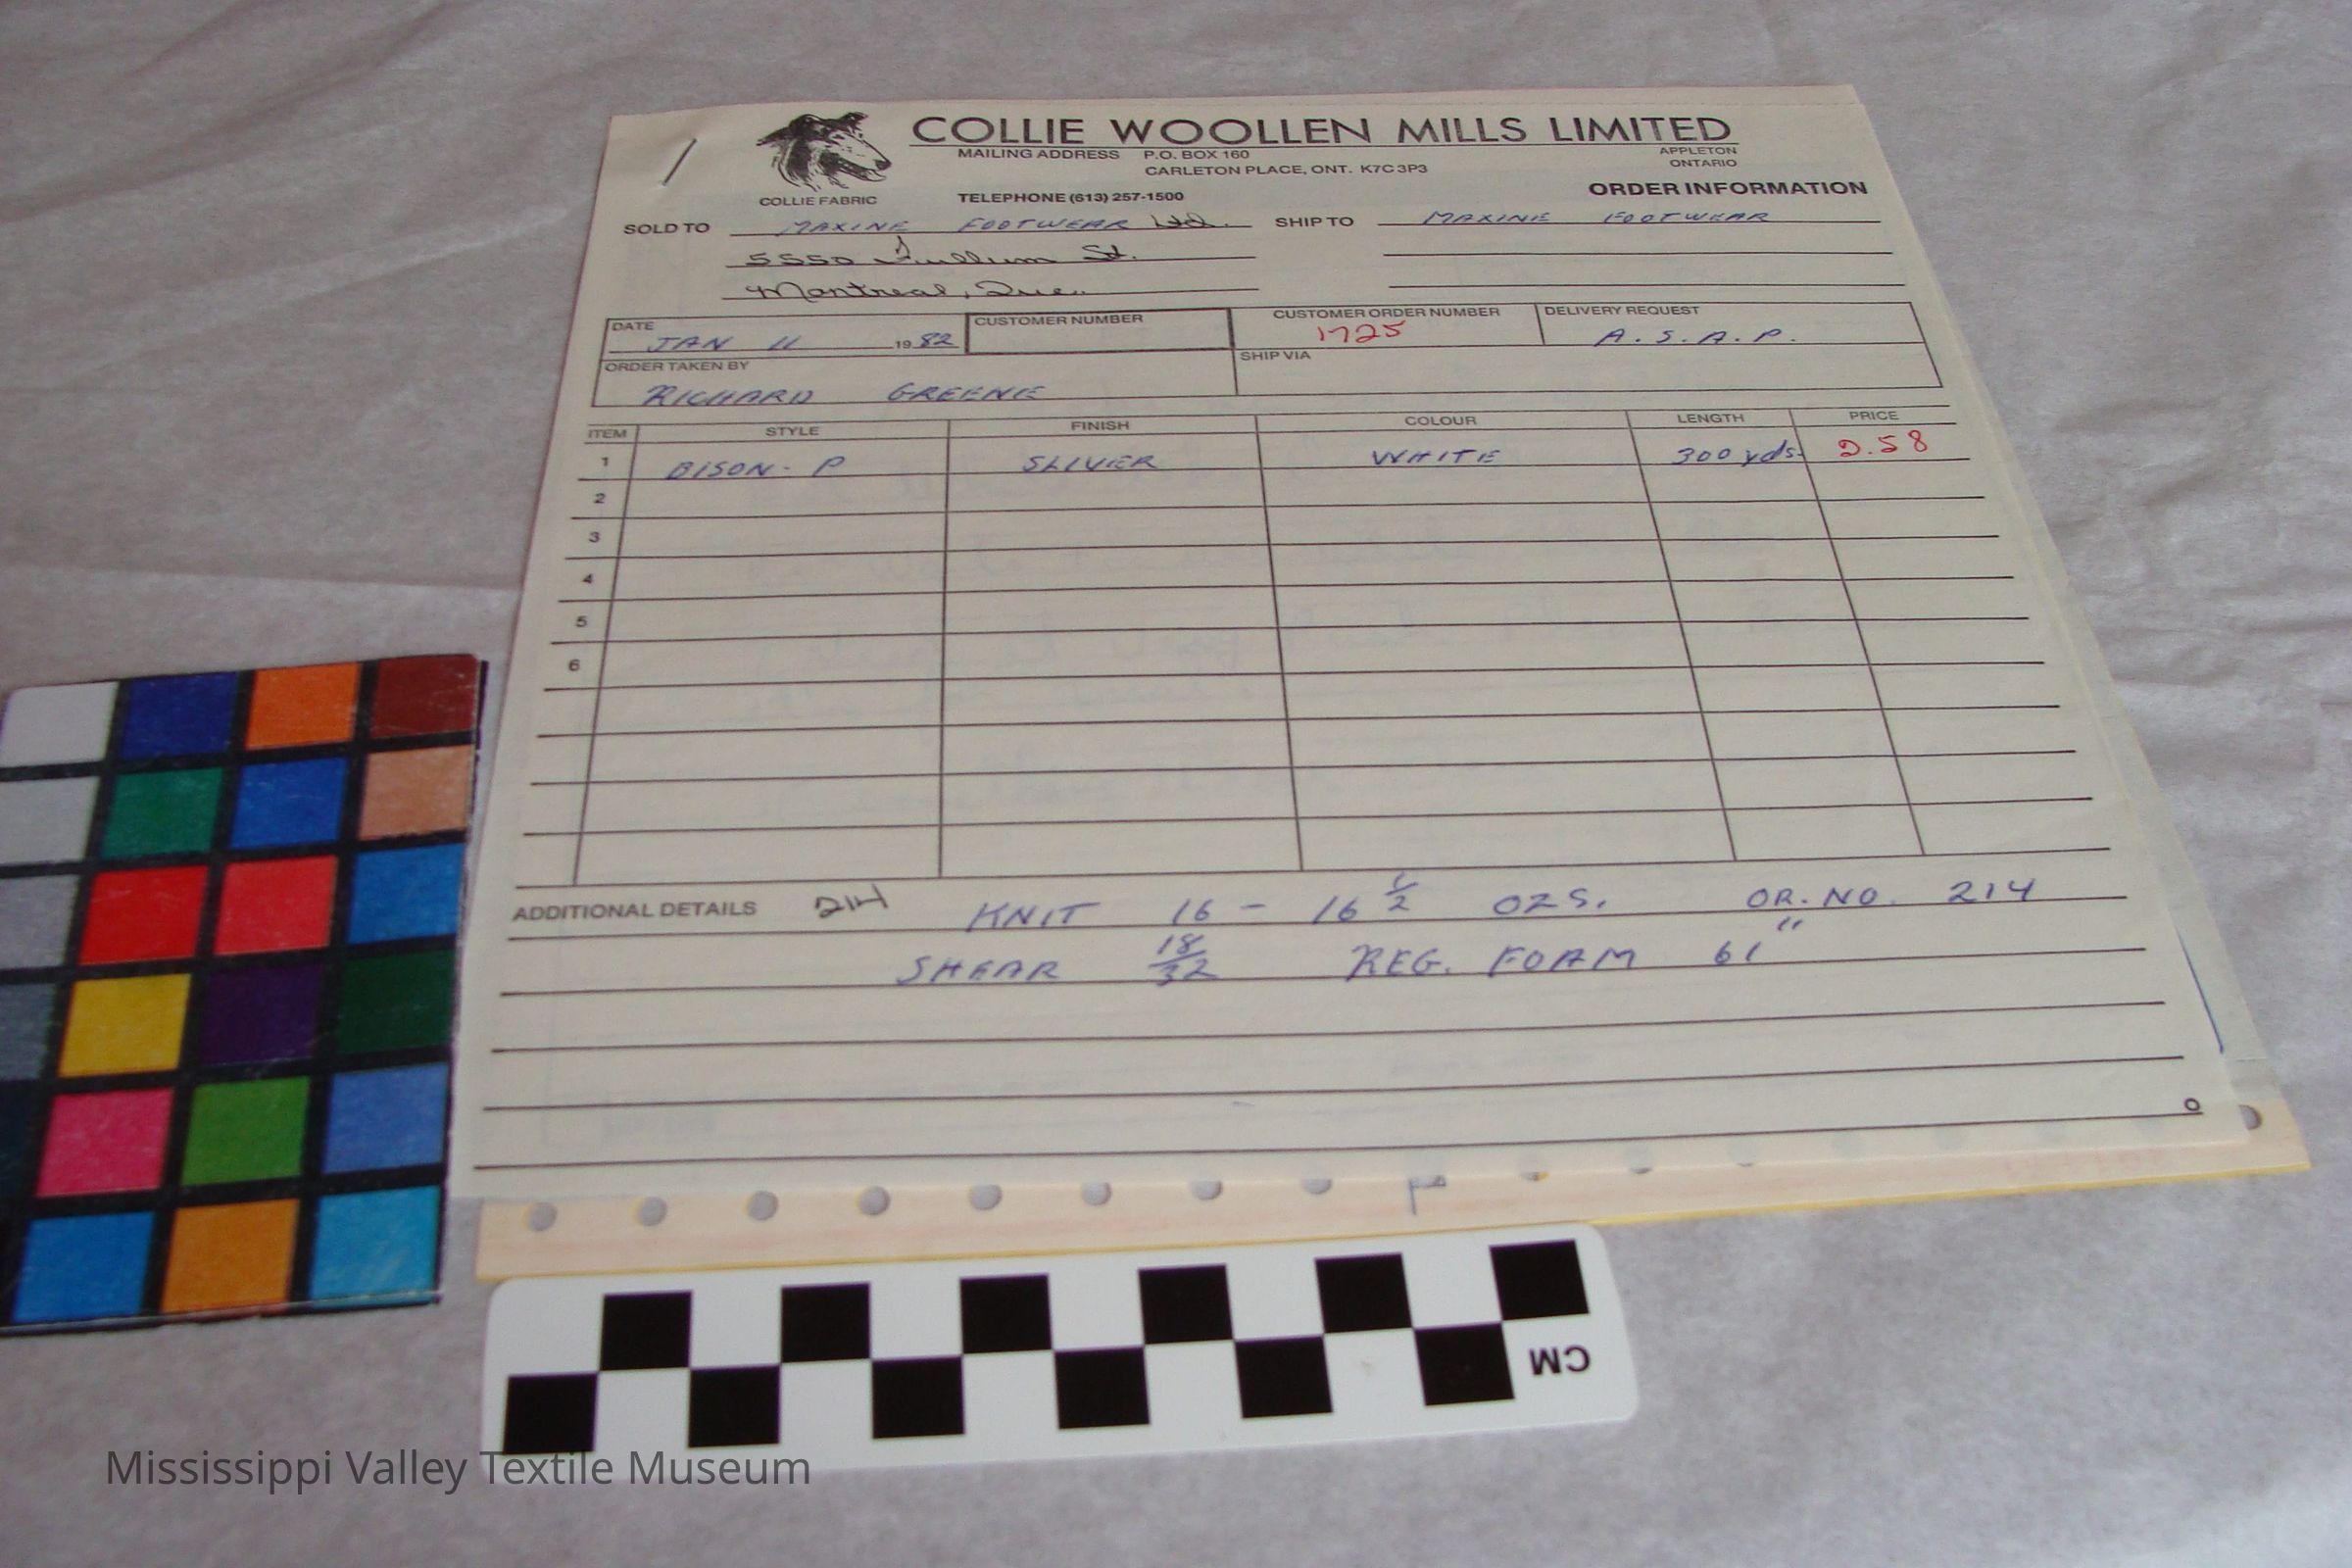 COLLIE WOOLLEN MILLS LIMITED
MAILING ADDRESS P.O. BOX 160
CARLETON PLACE, ONT. K7C 3P3
APPLETON
ONTARIO
COLLIE FABRIC
TELEPHONE (613) 257-1500
ORDER INFORMATION
SOLD TO MAXINE FOOTWEAR Ltd. SHIP TO MAXINE FOOTWEAR
5550 Fullum St.
Montreal, Que.
DATE CUSTOMER NUMBER CUSTOMER ORDER NUMBER DELIVERY REQUEST
JAN 11 1982 1725 A.S.A.P.
ORDER TAKEN BY SHIP VIA
RICHARD GREENE
ITEM STYLE FINISH COLOUR LENGTH PRICE
1 BISON-P SLIVER WHITE 300 yds. 2.58
2
3
4
5
6
ADDITIONAL DETAILS 214 KNIT 16 - 16 1/2 OZS. OR. NO. 214
SHEAR 18/32 REG. FOAM 61"
CM
Mississippi Valley Textile Museum